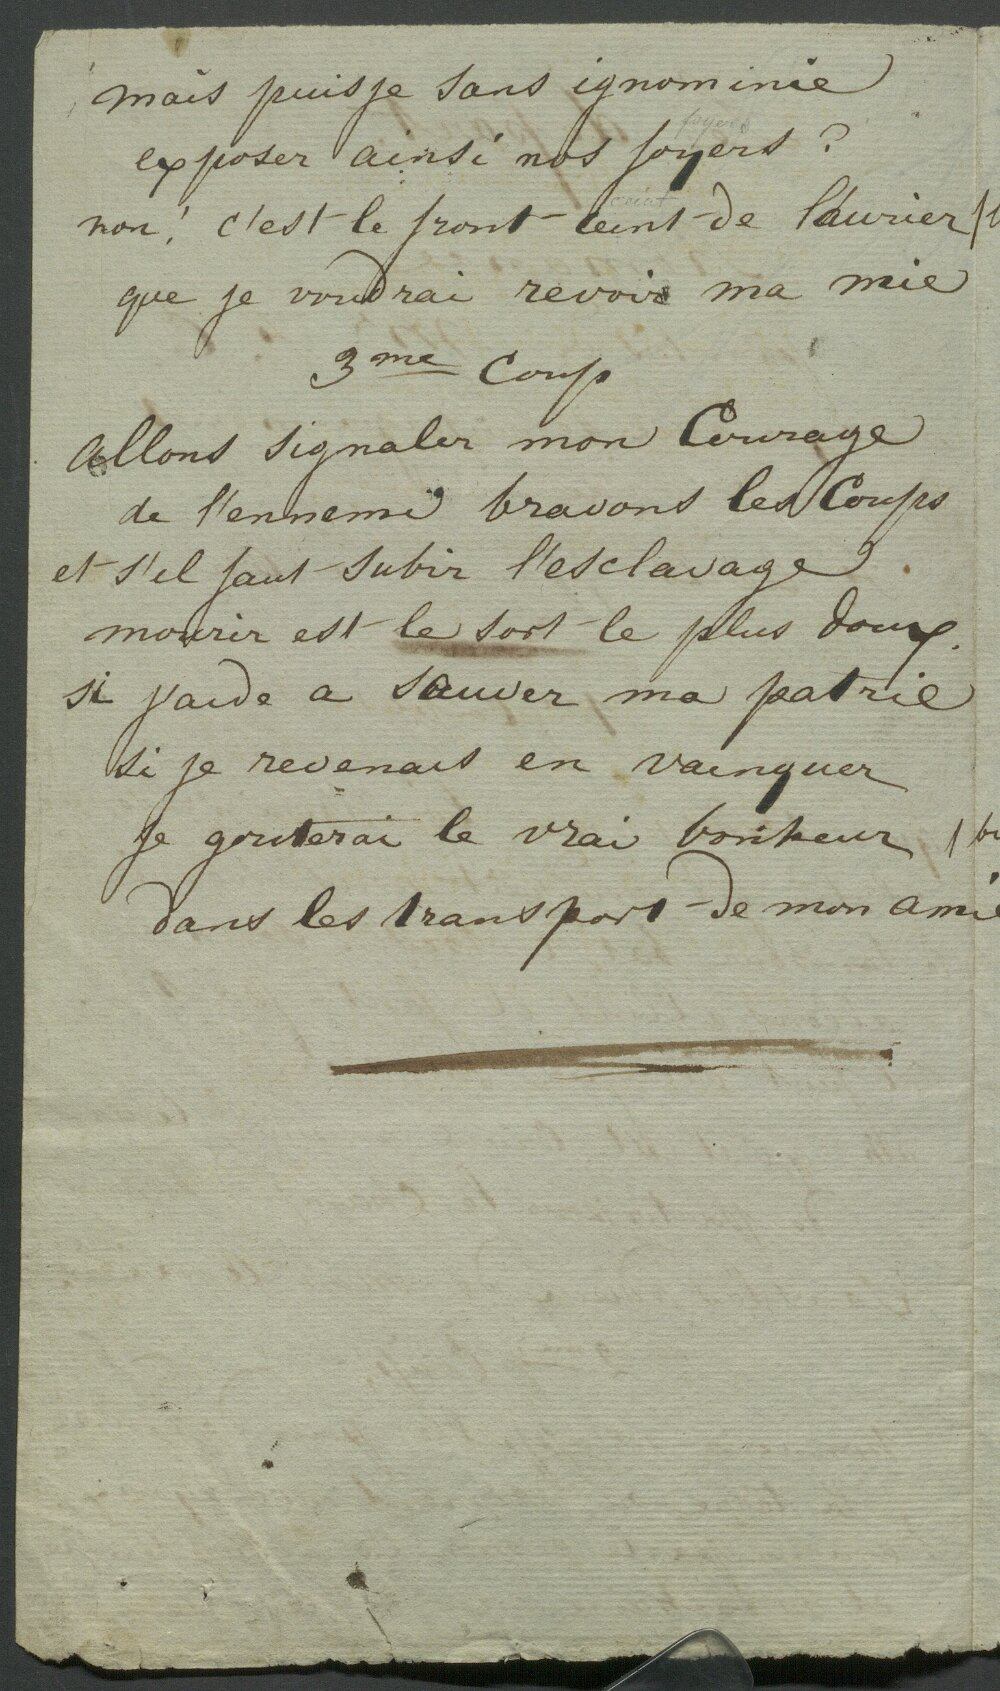 mais puisje sans ignominie
foyers
exposer ainsi nos foyers ?
ceint
non! c'est le front ceint de laurier
que je voudrai revoir ma mie
3me Coup
allons signaler mon Courage
de l'ennemi bravons les Coups
et s'il faut subir l'esclavage
mourir est le sort le plus doux.
si j'aide a sauver ma patrie
si je revenais en vainquer
je gouterai le vrai bonheur
dans les transport de mon amie